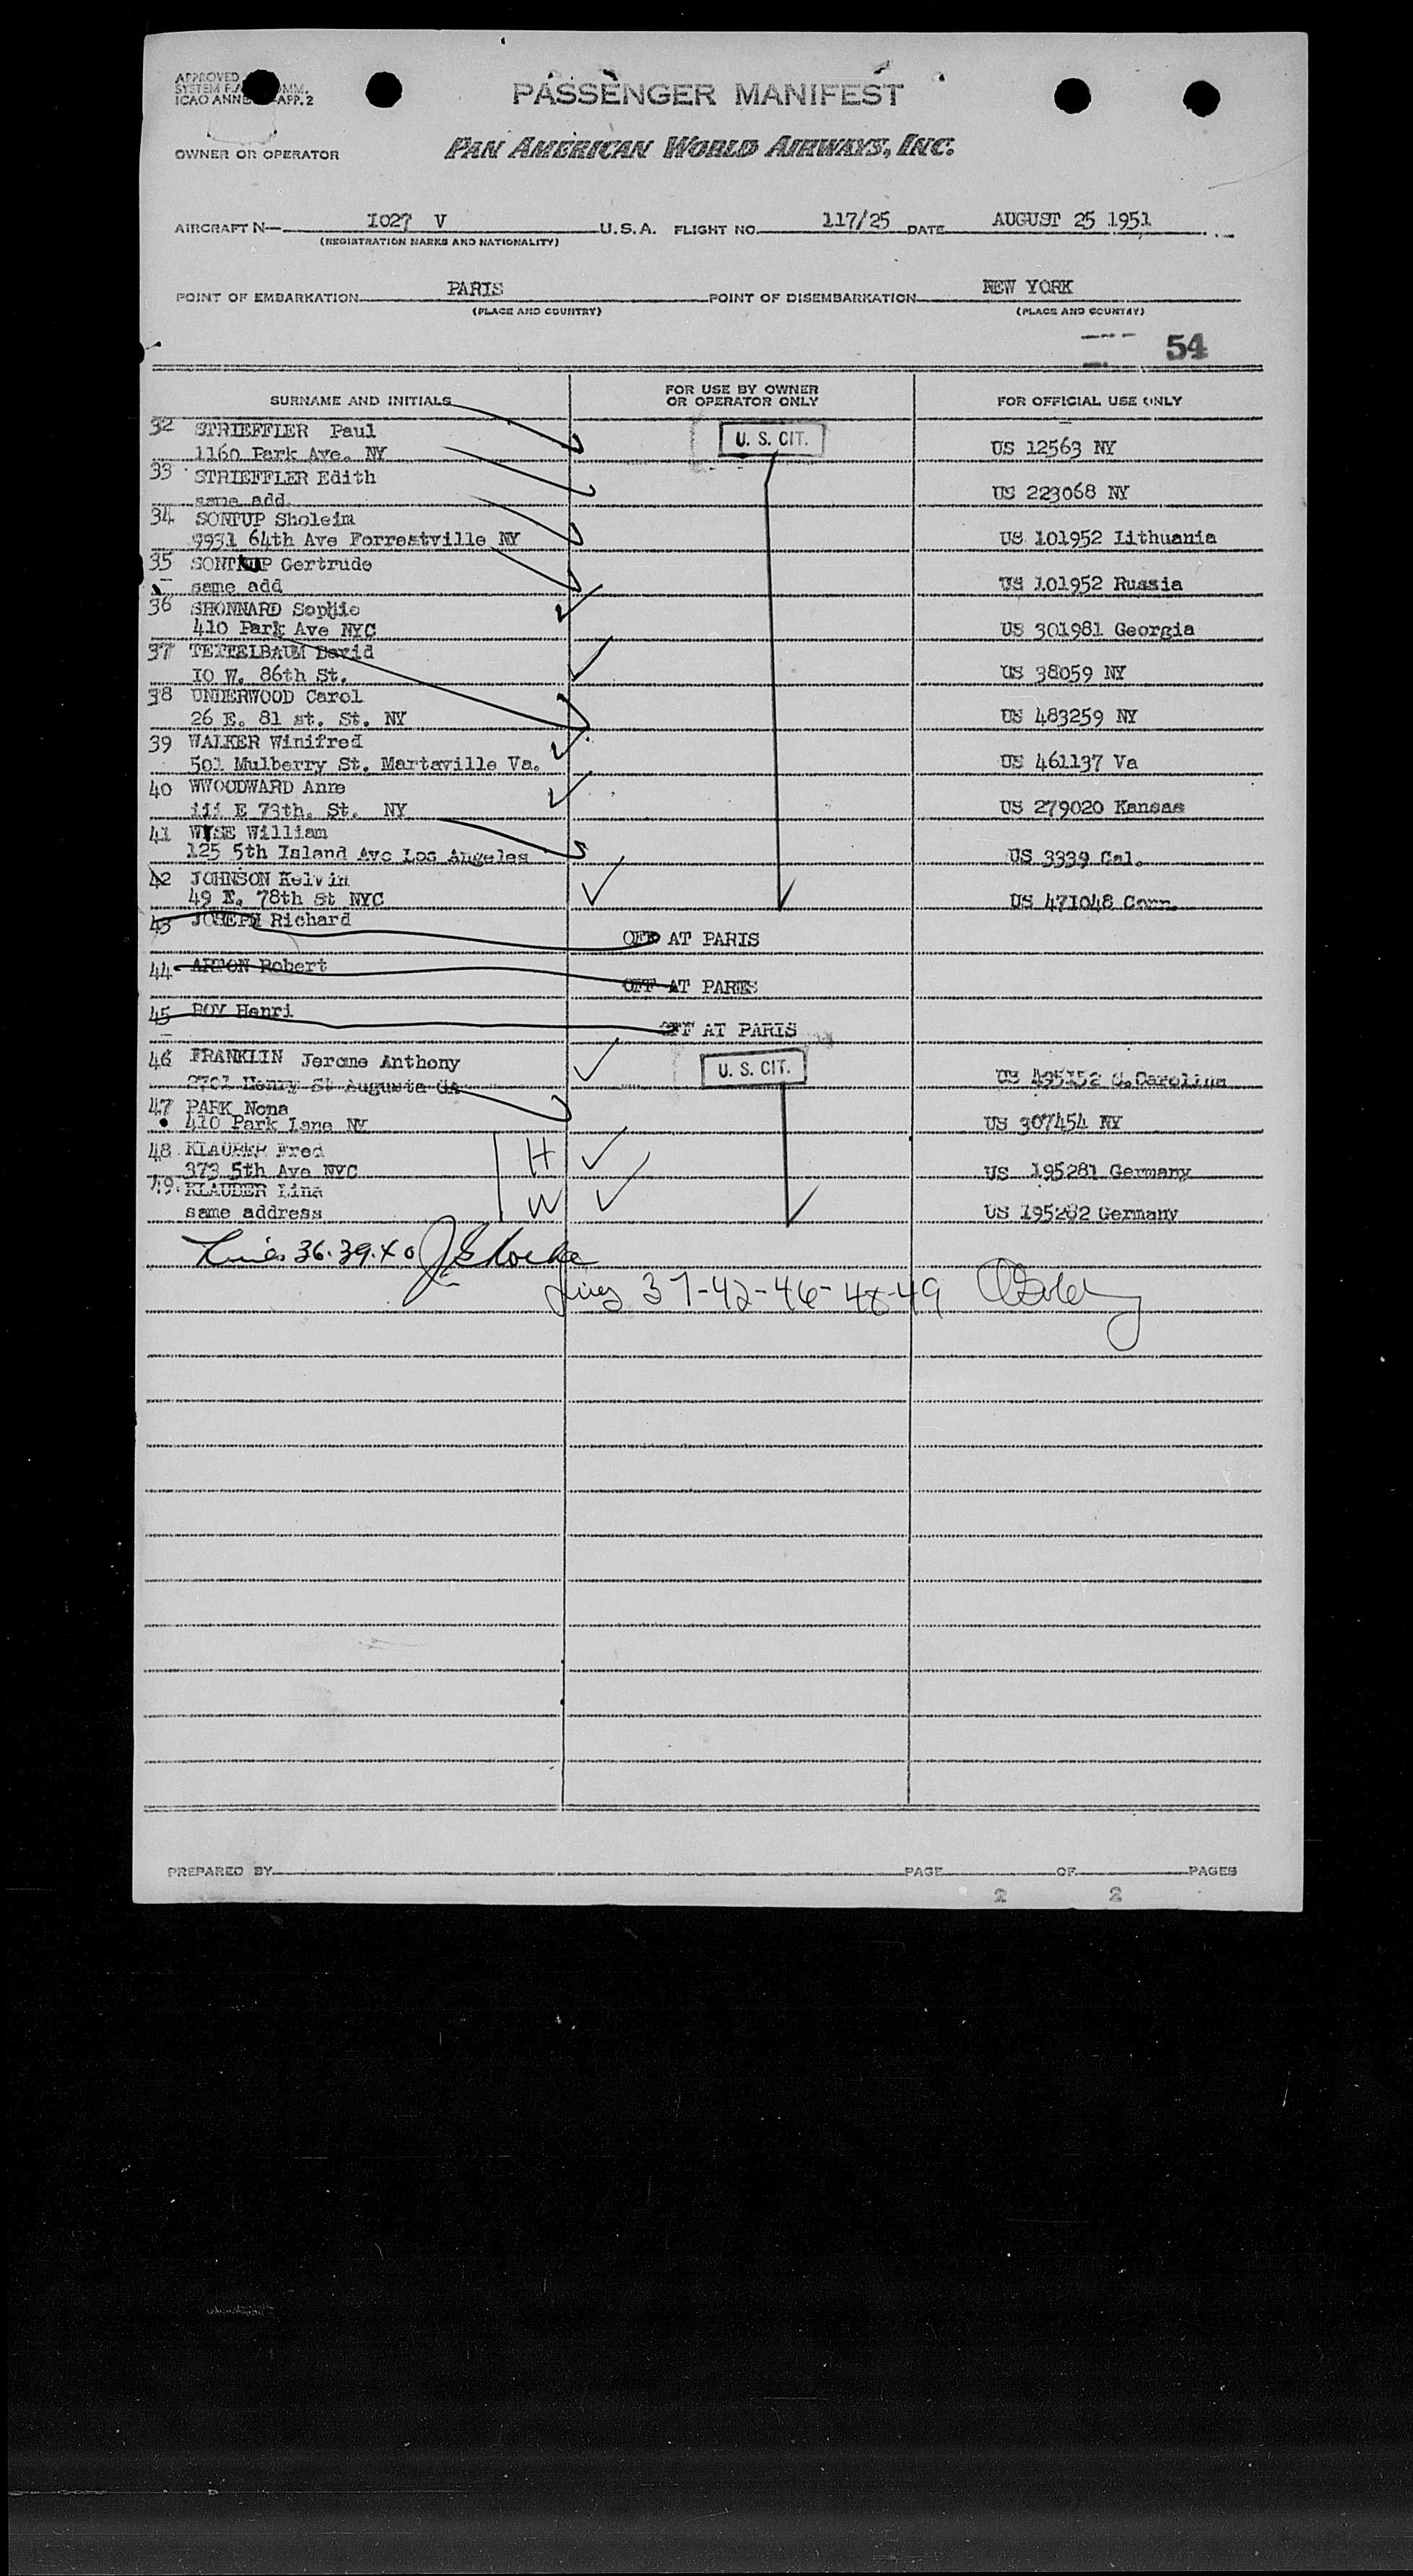 APPROVED
SYSTEM
ICAO APP. 2
PASSENGER MANIFEST
OWNER OR OPERATOR
PAN AMERICAN WORLD AIRWAYS, INC.
AIRCRAFT N— 1027 V U.S.A. FLIGHT NO. 117/25 DATE AUGUST 25 1951
(REGISTRATION MARKS AND NATIONALITY)
POINT OF EMBARKATION PARIS POINT OF DISEMBARKATION NEW YORK
(PLACE AND COUNTRY) (PLACE AND COUNTRY)
54
SURNAME AND INITIALS FOR USE BY OWNER OR OPERATOR ONLY FOR OFFICIAL USE ONLY
32 STRIEFFLER Paul U. S. CIT.
1160 Park Ave. NY US 12563 NY
33 STRIEFFLER Edith
same add. US 223068 NY
34 SONTUP Sholeim
9931 64th Ave Forrestville NY US 101952 Lithuania
35 SONTUP Gertrude
same add US 101952 Russia
36 SHONNARD Sophie
410 Park Ave NYC US 301981 Georgia
37 TEITELBAUM David
10 W. 86th St. US 38059 NY
38 UNDERWOOD Carol
26 E. 81 st. St. NY US 483259 NY
39 WALKER Winifred
501 Mulberry St. Martaville Va. US 461137 Va
40 WWOODWARD Anne
111 E 73th. St. NY US 279020 Kansas
41 WYSE William
125 5th Island Ave Los Angeles US 3339 Cal.
42 JOHNSON Kelvin
49 E. 78th St NYC US 471048 Conn.
43 JOSEPH Richard
OFF AT PARIS
44 ARTON Robert
OFF AT PARIS
45 ROY Henri
OFF AT PARIS
46 FRANKLIN Jerome Anthony U. S. CIT.
2701 Henry St Augusta GA US 495152 S.Carolina
47 PARK Nona
410 Park Lane NY US 307454 NY
48 KLAUBER Fred H
373 5th Ave NYC US 195281 Germany
49 KLAUBER Lina W
same address US 195282 Germany
Lines 36.39.40
Lines 37-42-46-48-49
PREPARED BY PAGE OF PAGES
2 2